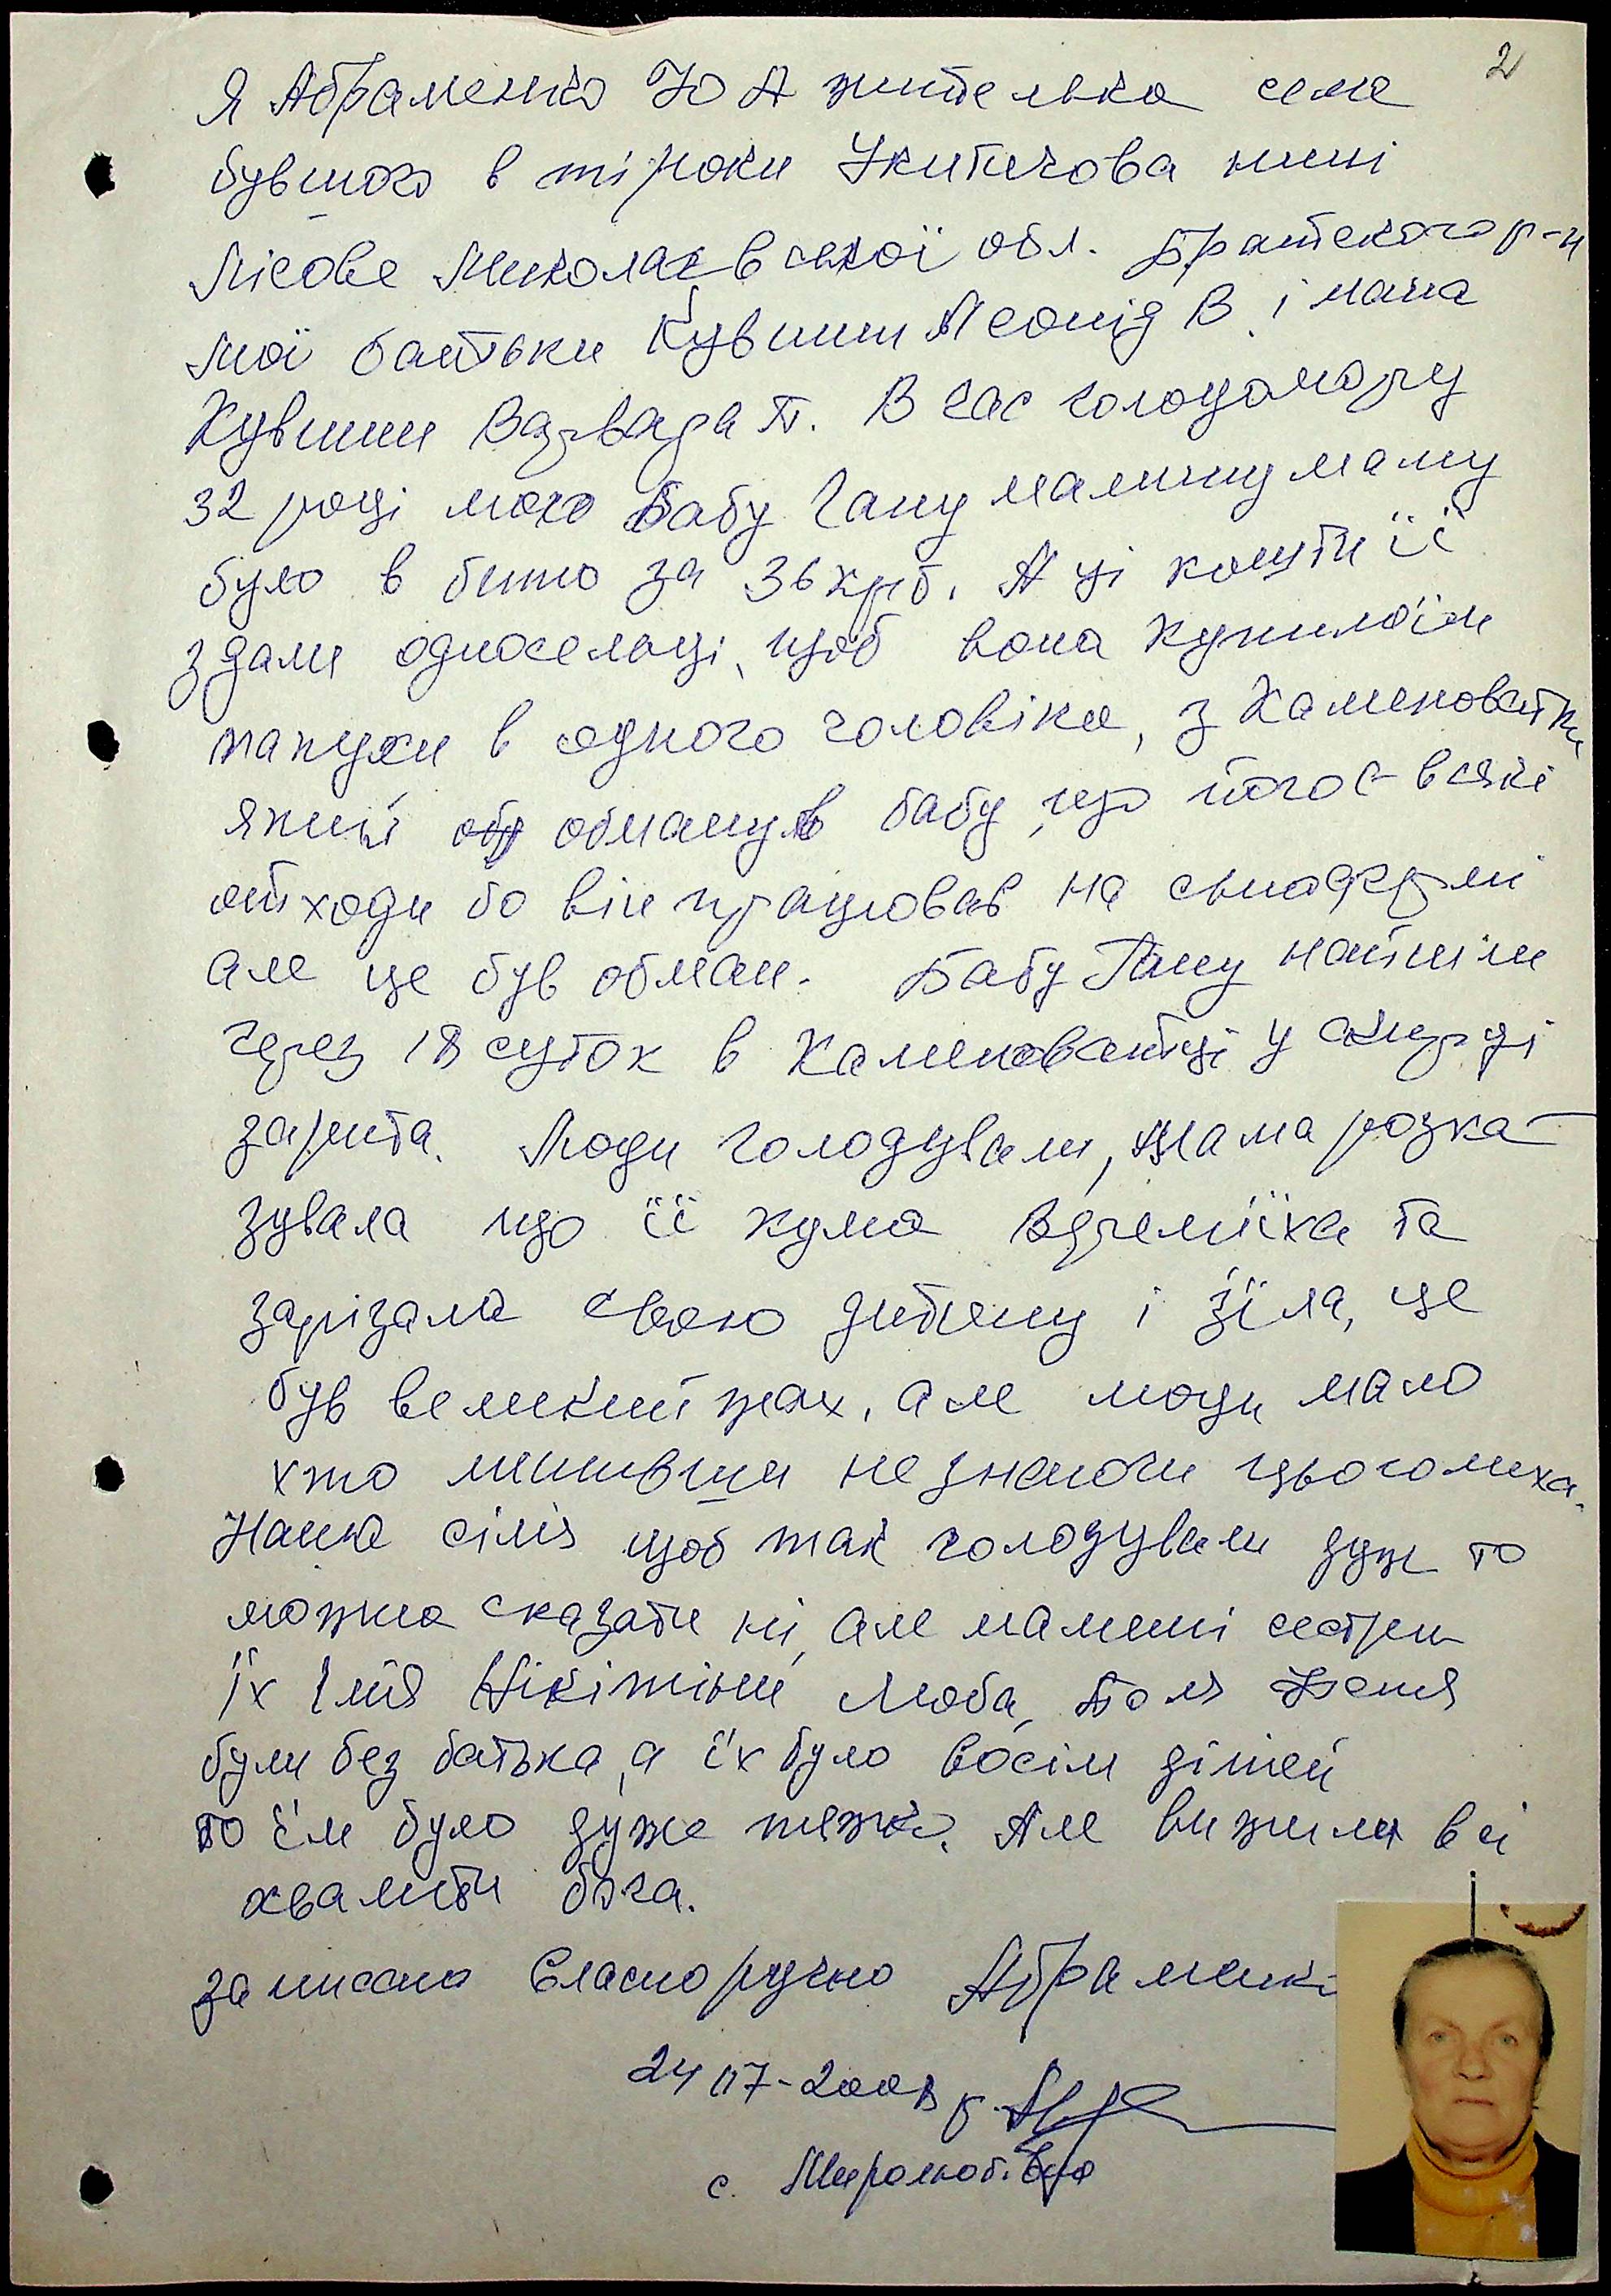 2
Я Абраменко Ю А жителька села
бувшого в ті роки Укитичова нині
Лісове Миколаєвської обл. Братського р-н
Мої батьки Кувшин Леонід В. і мама
Кувшин Варвара П. В час голодомору
32 році мою бабу Гану мамину маму
було в бито за 36 крб. А ці кошти її
здали односельці, щоб вона купила їм
макухи в одного чоловіка, з Каменоватки
який обманув бабу, що в його є всякі
отходи бо він працював на свинофермі
але це був обман. Бабу Гану найшли
через 18 суток в Каменоватці у скирді
зарита. Люди голодували, мама розка-
зувала що її кума Яремїїха та
зарізала свою дитину і зїїла, це
був великий жах, але люди мало
хто лишивши не знаючи цього лиха.
Наша сімя щоб так голодували дуж то
можна сказати ні, але мамині сестри
Їх Імя Нікітіни Люба, Поля Феня
були без батька, а їх було восім дітей
то їм було дуже тяжко. Але вижили всі
хвалити бога.
записано власноручно Абраменко
24 07-2008 р.
с. Миролюбівка